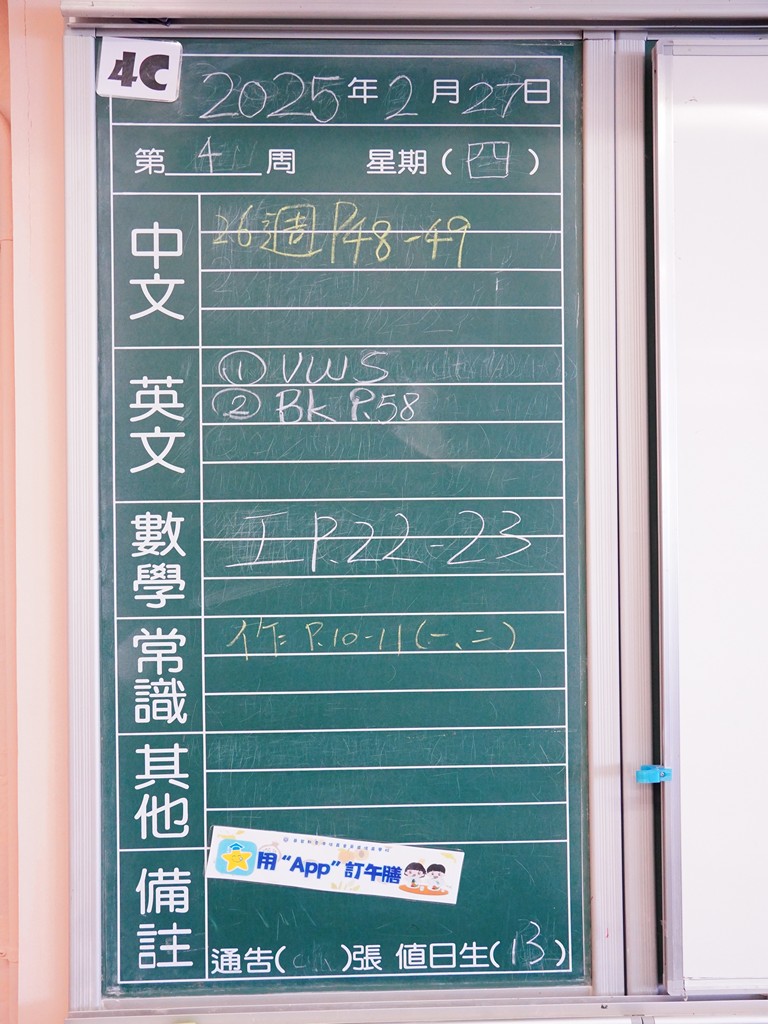 4C
2025年2月27日
第4周 星期(四)
中文
26週 P48-49
英文
① VWS
② BK P.58
數學
工 P.22-23
常識
作 P.10-11(一、二)
其他
備註
用“App”訂午膳
通告( )張 值日生(13)